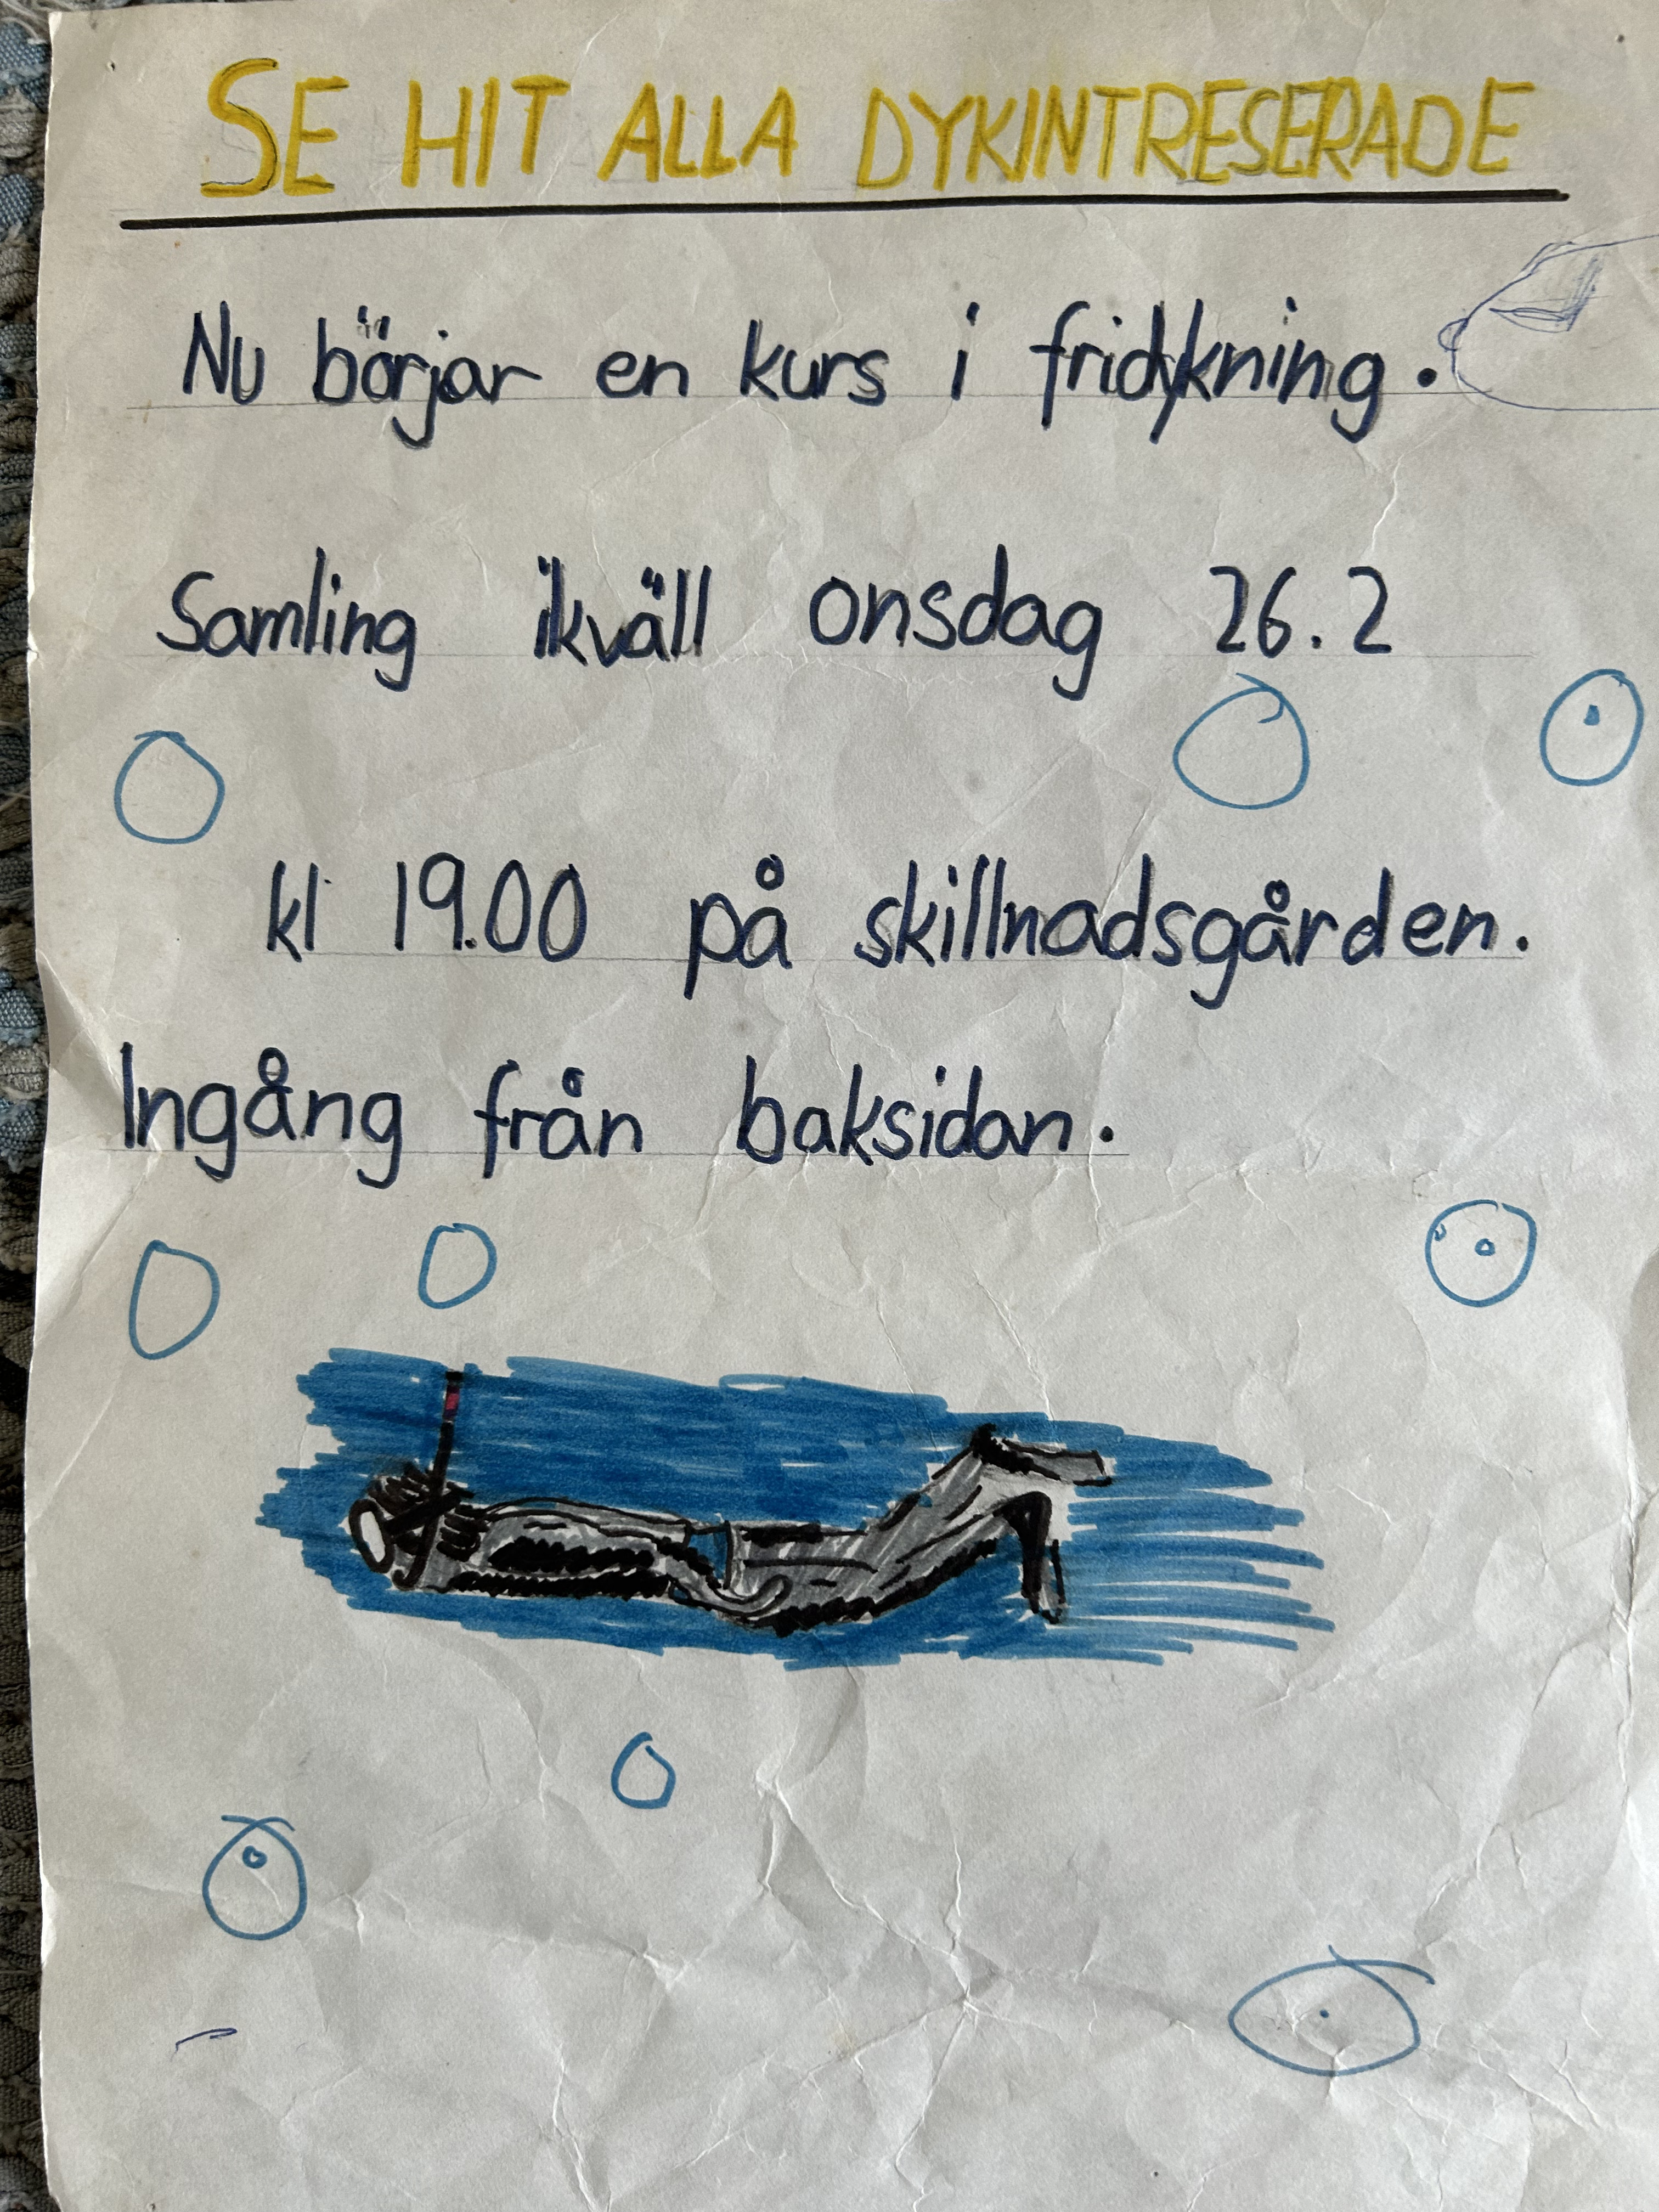 SE HIT ALLA DYKINTRESERADE
Nu börjar en kurs i fridykning.
Samling ikväll onsdag 26.2
kl 19.00 på skillnadsgården.
Ingång från baksidan.